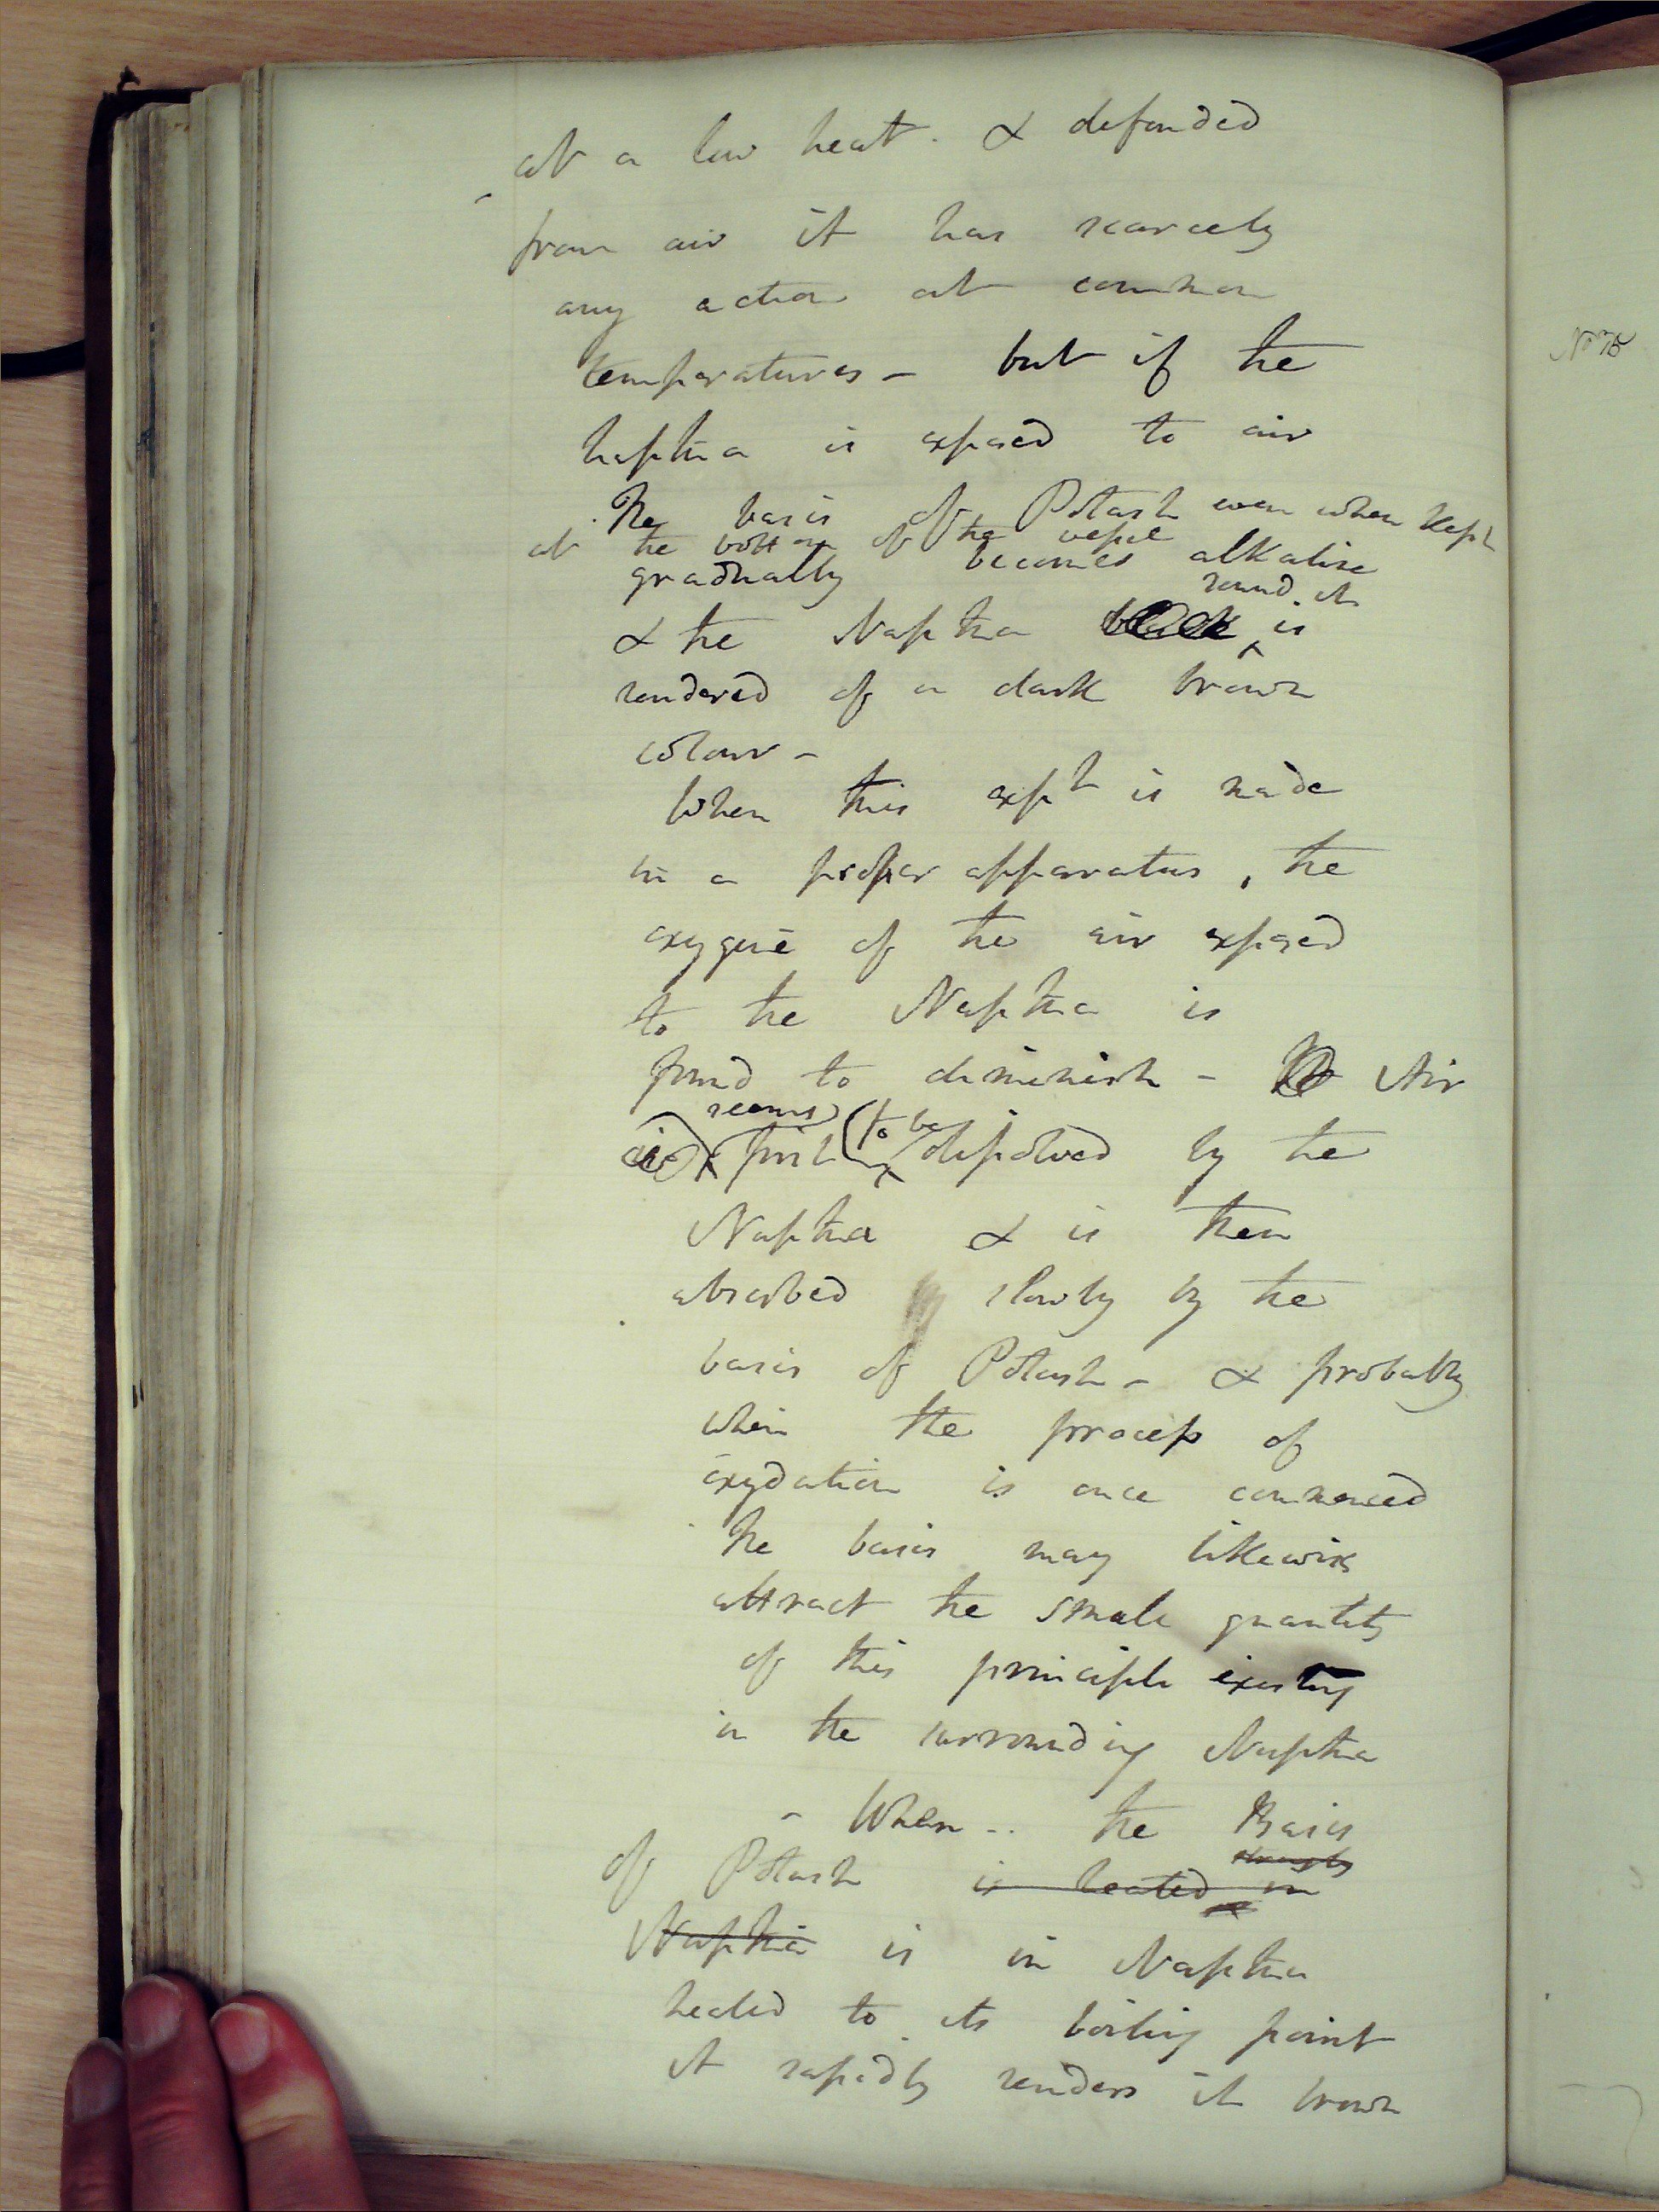 at a low heat. & defended
from air it has scarcely
any action at common
temperatures - but if the
naptha is exposed to air
the basis of Potash even when kept
at the bottom of the vessel
gradually becomes alkaline
round it
& the Naptha is
rendered of a dark brown
colour -
When this expt is made
in a proper apparatus, the
oxygene of the air exposed
to the Naptha is
found to diminish - Air
seems to be
first dissolved by the
Naptha & is then
absorbed slowly by the
basis of Potash - & probably
when the process of
oxydation is once commenced
the basis may likewise
attract the small quantity
of this principle existing
in the surrounding Naptha
- When - the Basis
strongly
of Potash is heated in
Naptha is in Naptha
heated to its boiling point
it rapidly renders it brown